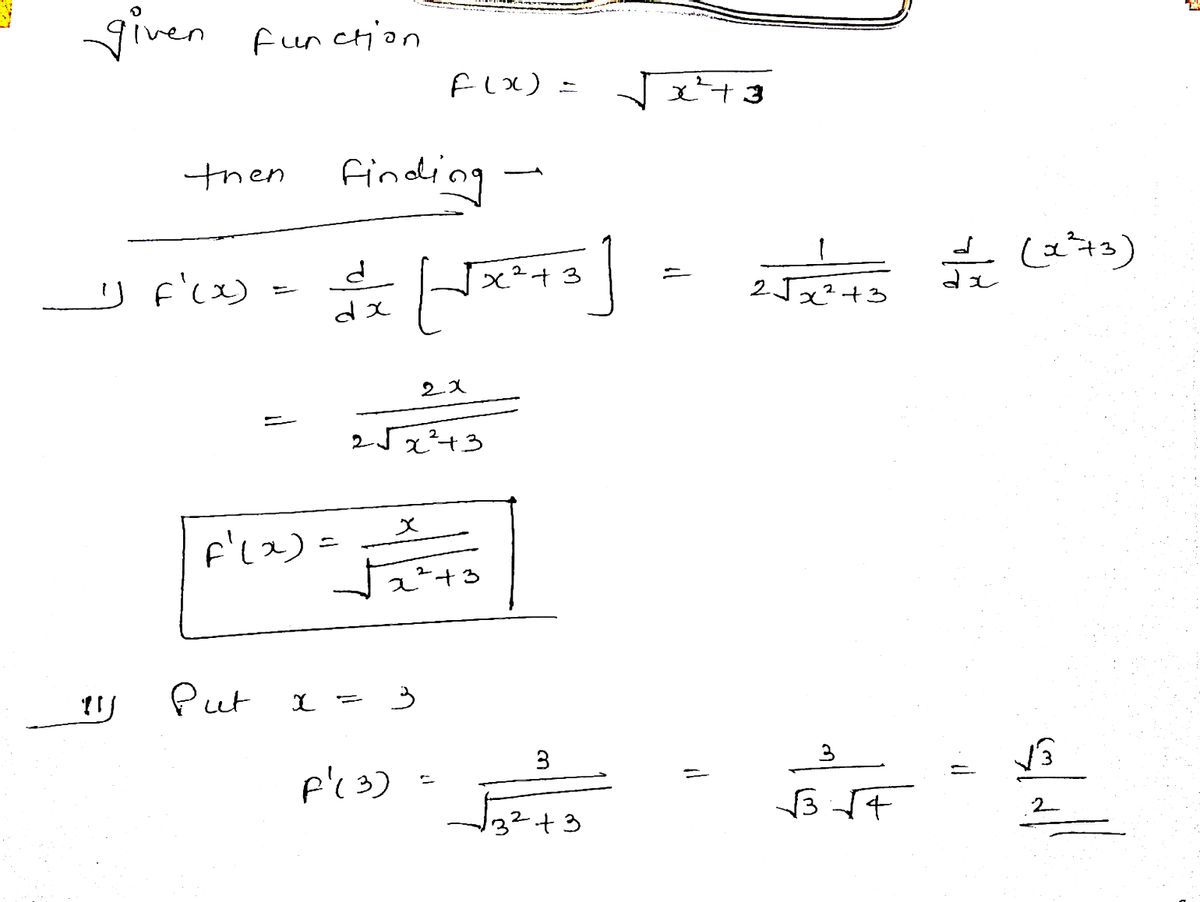 given function
f(x) = √(x²+3)
then finding –
i) f'(x) = d/dx [√(x²+3)] = 1/(2√(x²+3)) d/dx (x²+3)
= 2x/(2√(x²+3))
f'(x) = x/√(x²+3)
ii) Put x = 3
f'(3) = 3/√(3²+3) = 3/(√3 √4) = √3/2